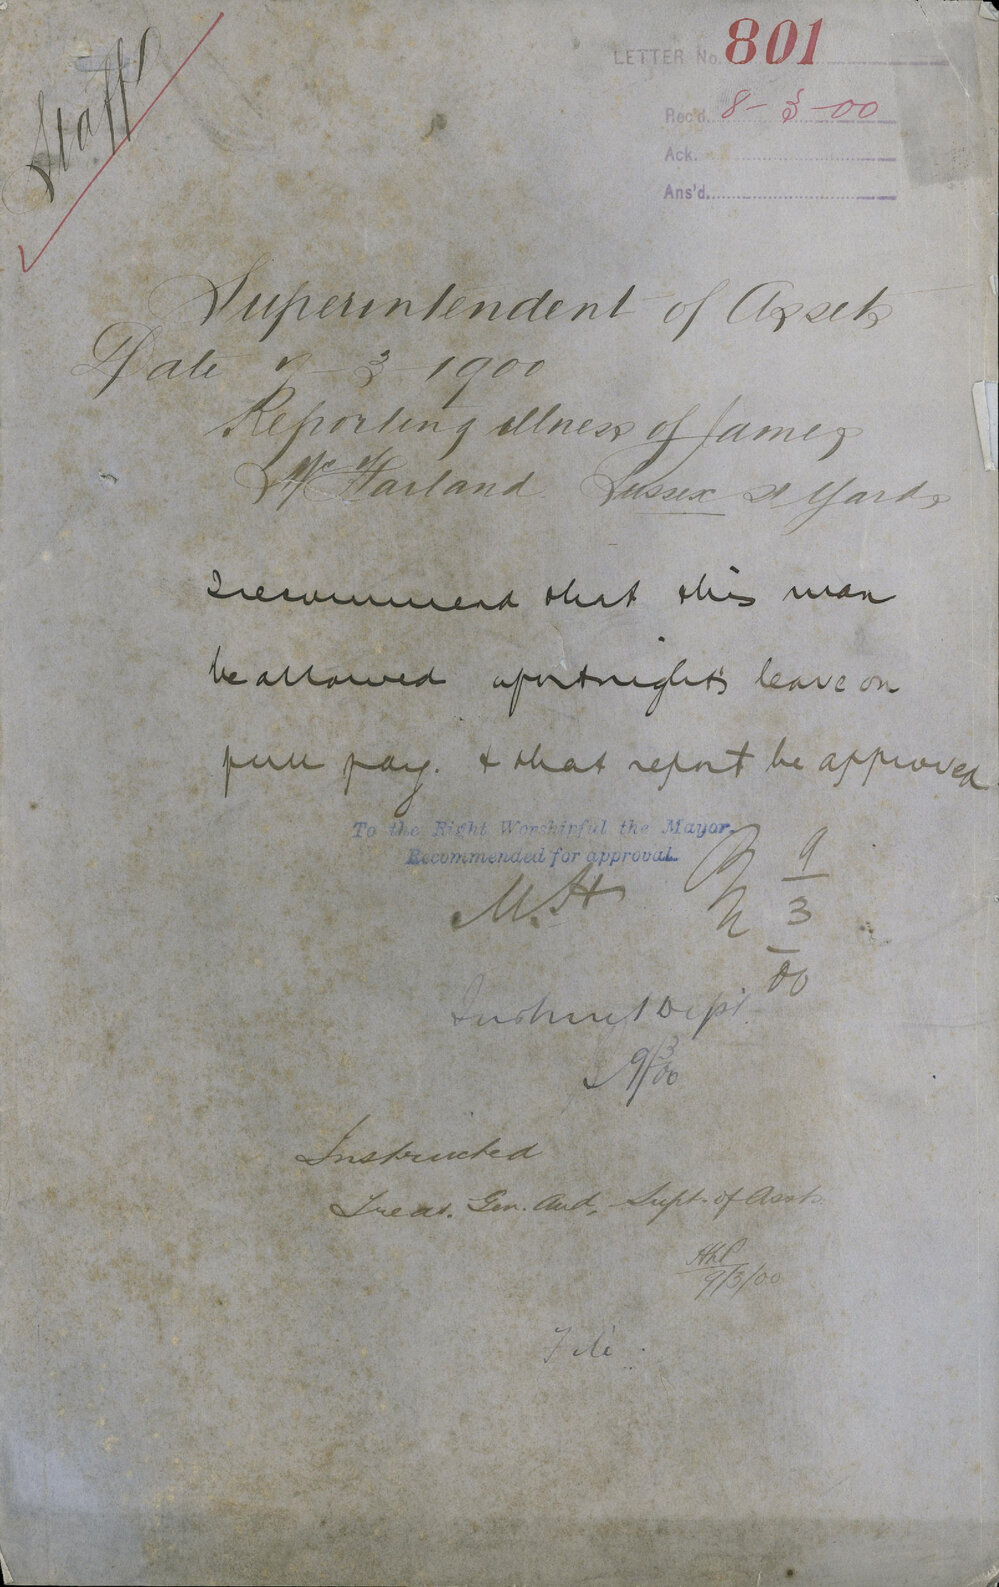 Staff
LETTER No. 801
Rec'd. 8-3-00
Ack.
Ans'd.
Superintendent of Assets
Date 3 1900
Reporting illness of James
McHarland Sussex St Yards
I recommend that this man
be allowed a fortnight's leave on
full pay. & that report be approved
To the Right Worshipful the Mayor.
Recommended for approval.
M.H 9
3
00
Instruct Dept
9/3/00
Instructed
Treas. Gen. Aud, Supt. of Assts.
9/3/00
File.